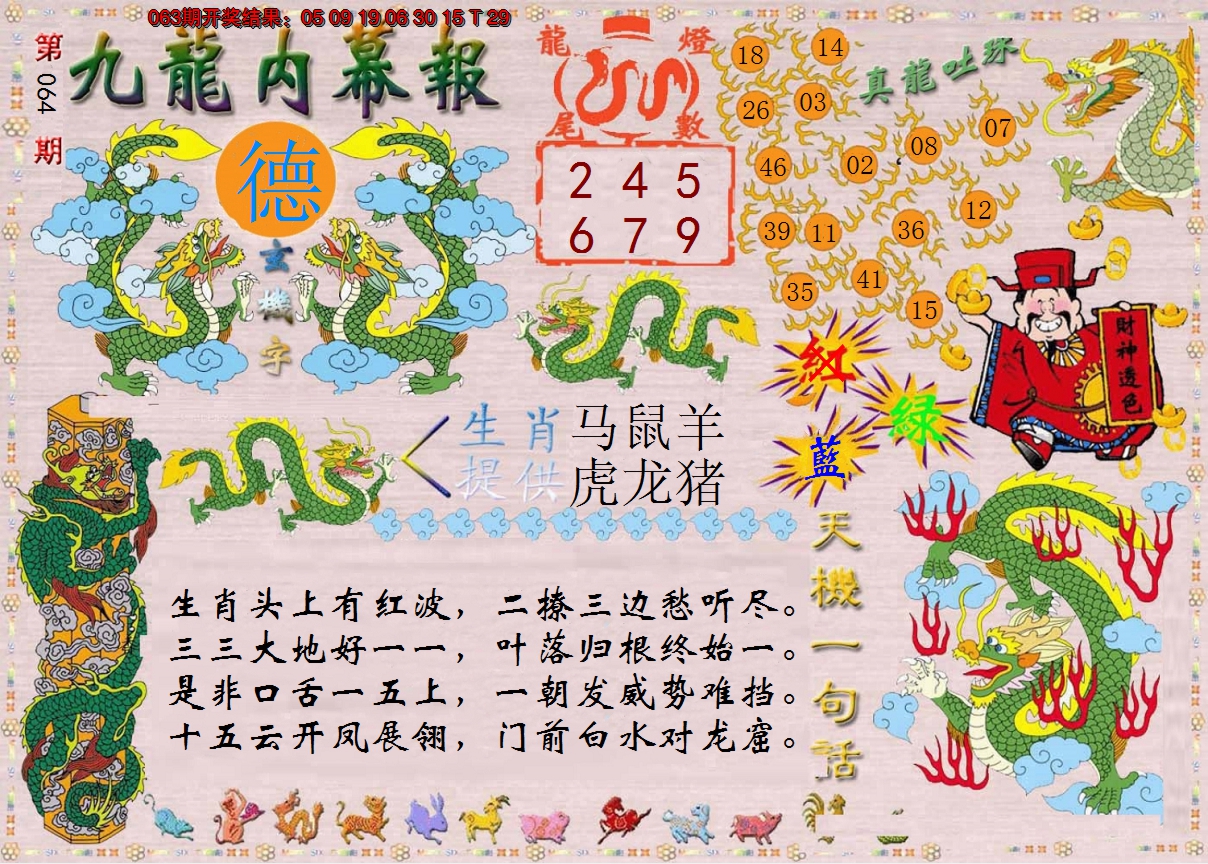 063期开奖结果：05 09 19 06 30 15 T 29
第064期
九龍内幕報
德
玄機字
龍燈
尾數
2 4 5
6 7 9
真龍吐珠
18
14
26
03
46
02
08
07
39
11
36
12
35
41
15
財神透色
紅
綠
藍
生肖提供
马鼠羊
虎龙猪
天機一句話
生肖头上有红波，二撩三边愁听尽。
三三大地好一一，叶落归根终始一。
是非口舌一五上，一朝发威势难挡。
十五云开凤展翎，门前白水对龙窟。